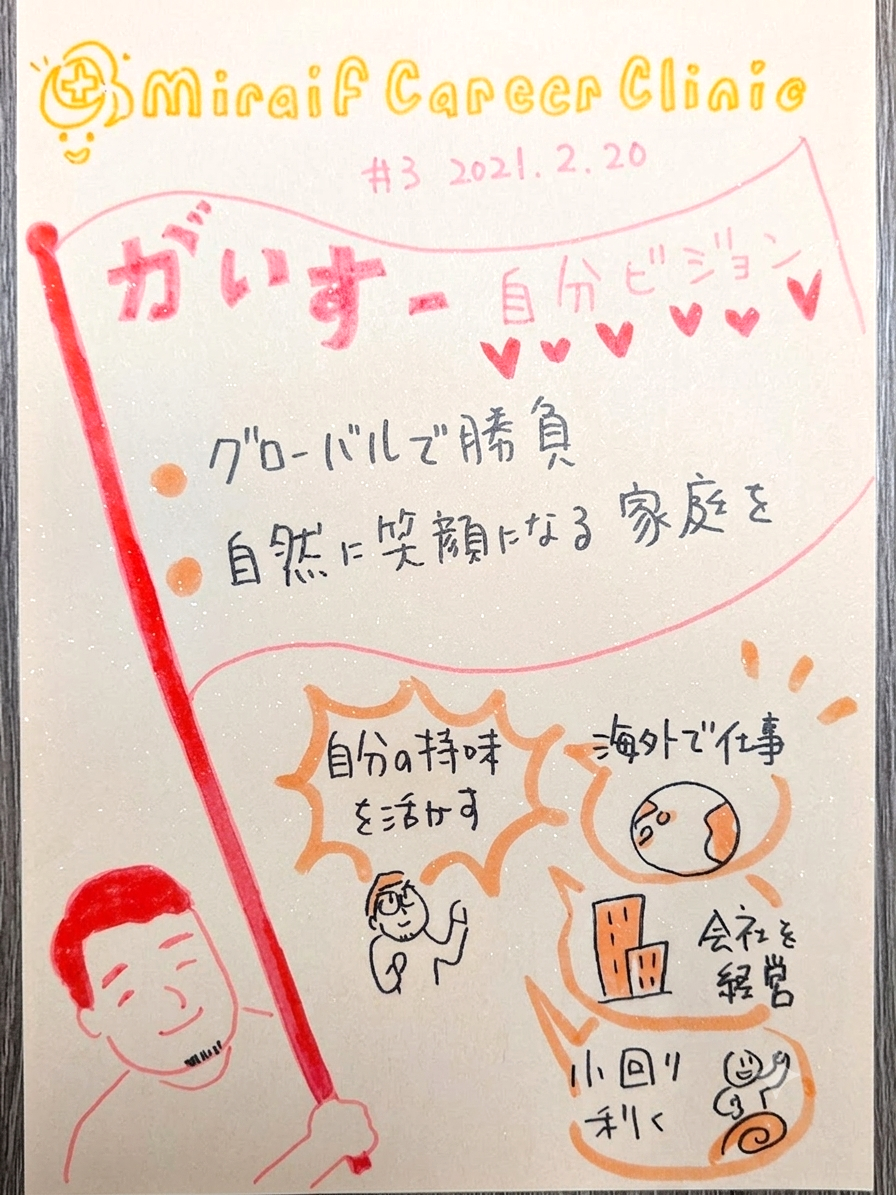 Miraif Career Clinic
#3 2021.2.20
がいすー 自分ビジョン
グローバルで勝負
自然に笑顔になる 家庭を
自分の持味
を活かす
海外で仕事
会社を
経営
小回り
利く